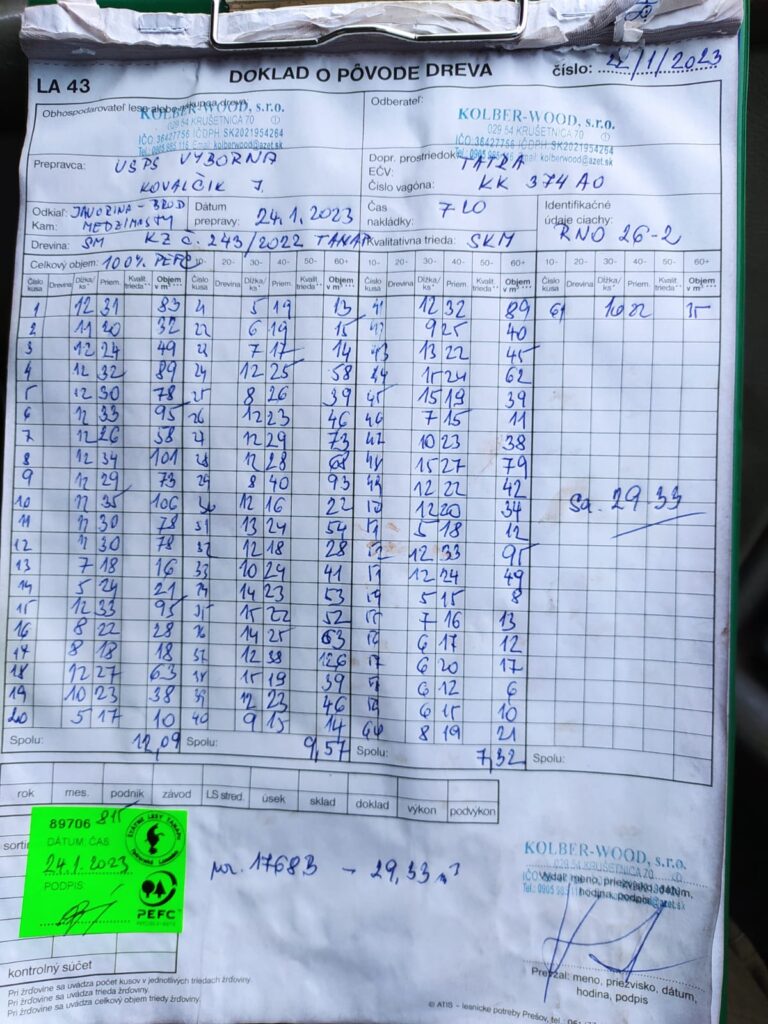 LA 43
DOKLAD O PÔVODE DREVA
číslo: 22/1/2023
Obhospodarovateľ lesa alebo nákupca dreva
KOLBER-WOOD, s.r.o.
029 54 KRUŠETNICA 70
IČO:36427756 IČDPH: SK2021954264
Odberateľ:
KOLBER-WOOD, s.r.o.
029 54 KRUŠETNICA 70
IČO:36427756 IČDPH: SK2021954264
Prepravca: USPS VYBORNA
KOVALČIK J.
Dopr. prostriedok: TATRA
EČV:
Číslo vagóna: KK 374 AO
Odkiaľ: JAVORINA - BROD
Kam: MEDZIMASTY
Dátum prepravy: 24.1.2023
Čas nakládky: 7 20
Identifikačné údaje ciachy: RNO 26-2
Drevina: SM KZ č. 243/2022 TANAP
Kvalitatívna trieda: SKM
Celkový objem: 100% PEFC
10- 20- 30- 40- 50- 60+
Číslo kusa Drevina Dĺžka/ks Priem. Kvalit. trieda** Objem v m³***
1 12 31 83 21 5 19 13 41 12 32 89 61 10 22 35
2 11 20 32 22 6 19 15 42 9 25 40
3 12 24 49 23 7 17 14 43 13 22 45
4 12 32 89 24 12 25 58 44 15 24 62
5 12 30 78 25 8 26 39 45 15 19 39
6 12 33 95 26 12 23 46 46 7 15 11
7 12 26 58 27 12 29 73 47 10 23 38
8 12 34 101 28 12 28 68 48 15 27 79
9 12 29 73 29 8 40 93 49 12 22 42
10 12 35 106 30 12 16 22 50 12 20 34
Sa. 29 33
11 12 30 78 31 13 24 54 51 5 18 12
12 12 30 78 32 12 18 28 52 12 33 95
13 7 18 16 33 10 24 41 53 12 24 49
14 5 24 21 34 14 23 53 54 5 15 8
15 12 33 95 35 15 22 52 55 7 16 13
16 8 22 28 36 14 25 63 56 6 17 12
17 8 18 18 37 12 38 126 57 6 20 17
18 12 27 63 38 15 19 39 58 6 12 6
19 10 23 38 39 12 23 46 59 6 15 10
20 5 17 10 40 9 15 14 60 8 19 21
Spolu: 12,09 Spolu: 9,57 Spolu: 7,32 Spolu:
rok mes. podnik závod LS stred. úsek sklad doklad výkon podvýkon
89706 815
DÁTUM, ČAS
24.1.2023
PODPIS
ŠTÁTNE LESY TANAPu
PEFC
17683 - 29,33 m³
KOLBER-WOOD, s.r.o.
029 54 KRUŠETNICA 70
Vydal: meno, priezvisko, dátum,
hodina, podpis
Prevzal: meno, priezvisko, dátum,
hodina, podpis
kontrolný súčet
Pri žrďovine sa uvádza počet kusov v jednotlivých triedach žrďoviny.
Pri žrďovine sa uvádza trieda žrďoviny.
Pri žrďovine sa uvádza celkový objem triedy žrďoviny.
© ATIS – lesnícke potreby Prešov,